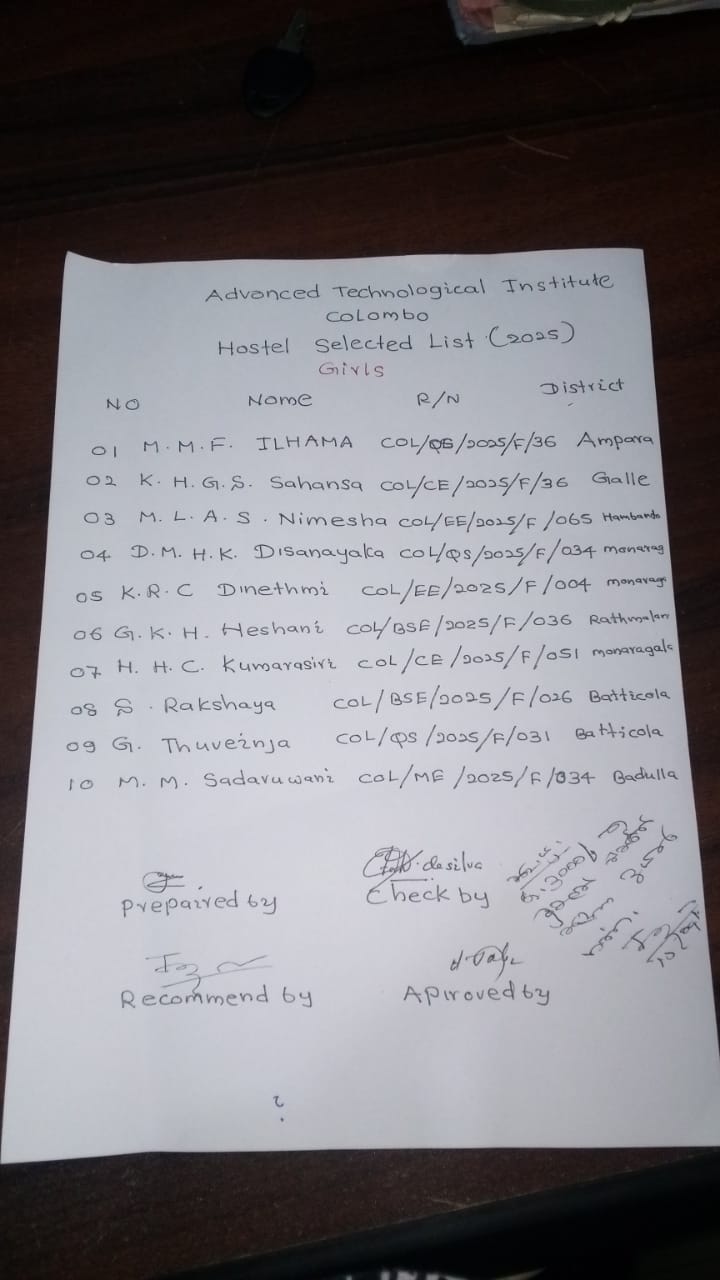 Advanced Technological Institute
Colombo
Hostel Selected List (2025)
Girls
NO Name R/N District
01 M.M.F. ILHAMA COL/QS/2025/F/36 Ampara
02 K.H.G.S. Sahansa COL/CE/2025/F/36 Galle
03 M.L.A.S. Nimesha COL/EE/2025/F/065 Hambanto
04 D.M.H.K. Disanayaka COL/QS/2025/F/034 monarag
05 K.R.C Dinethmi COL/EE/2025/F/004 monarag
06 G.K.H. Heshani COL/BSE/2025/F/036 Rathmalan
07 H.H.C. Kumarasiri COL/CE/2025/F/051 monaragala
08 S. Rakshaya COL/BSE/2025/F/026 Batticola
09 G. Thuveinja COL/QS/2025/F/031 Batticola
10 M.M. Sadaruwani COL/ME/2025/F/034 Badulla
de silva
Prepaired by Check by
Recommend by Apiroved by
?